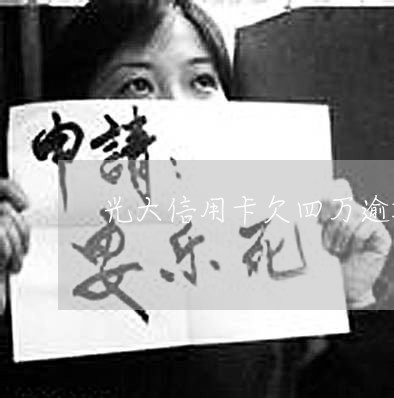 申請：
光大信用卡欠四万逾
安乐死